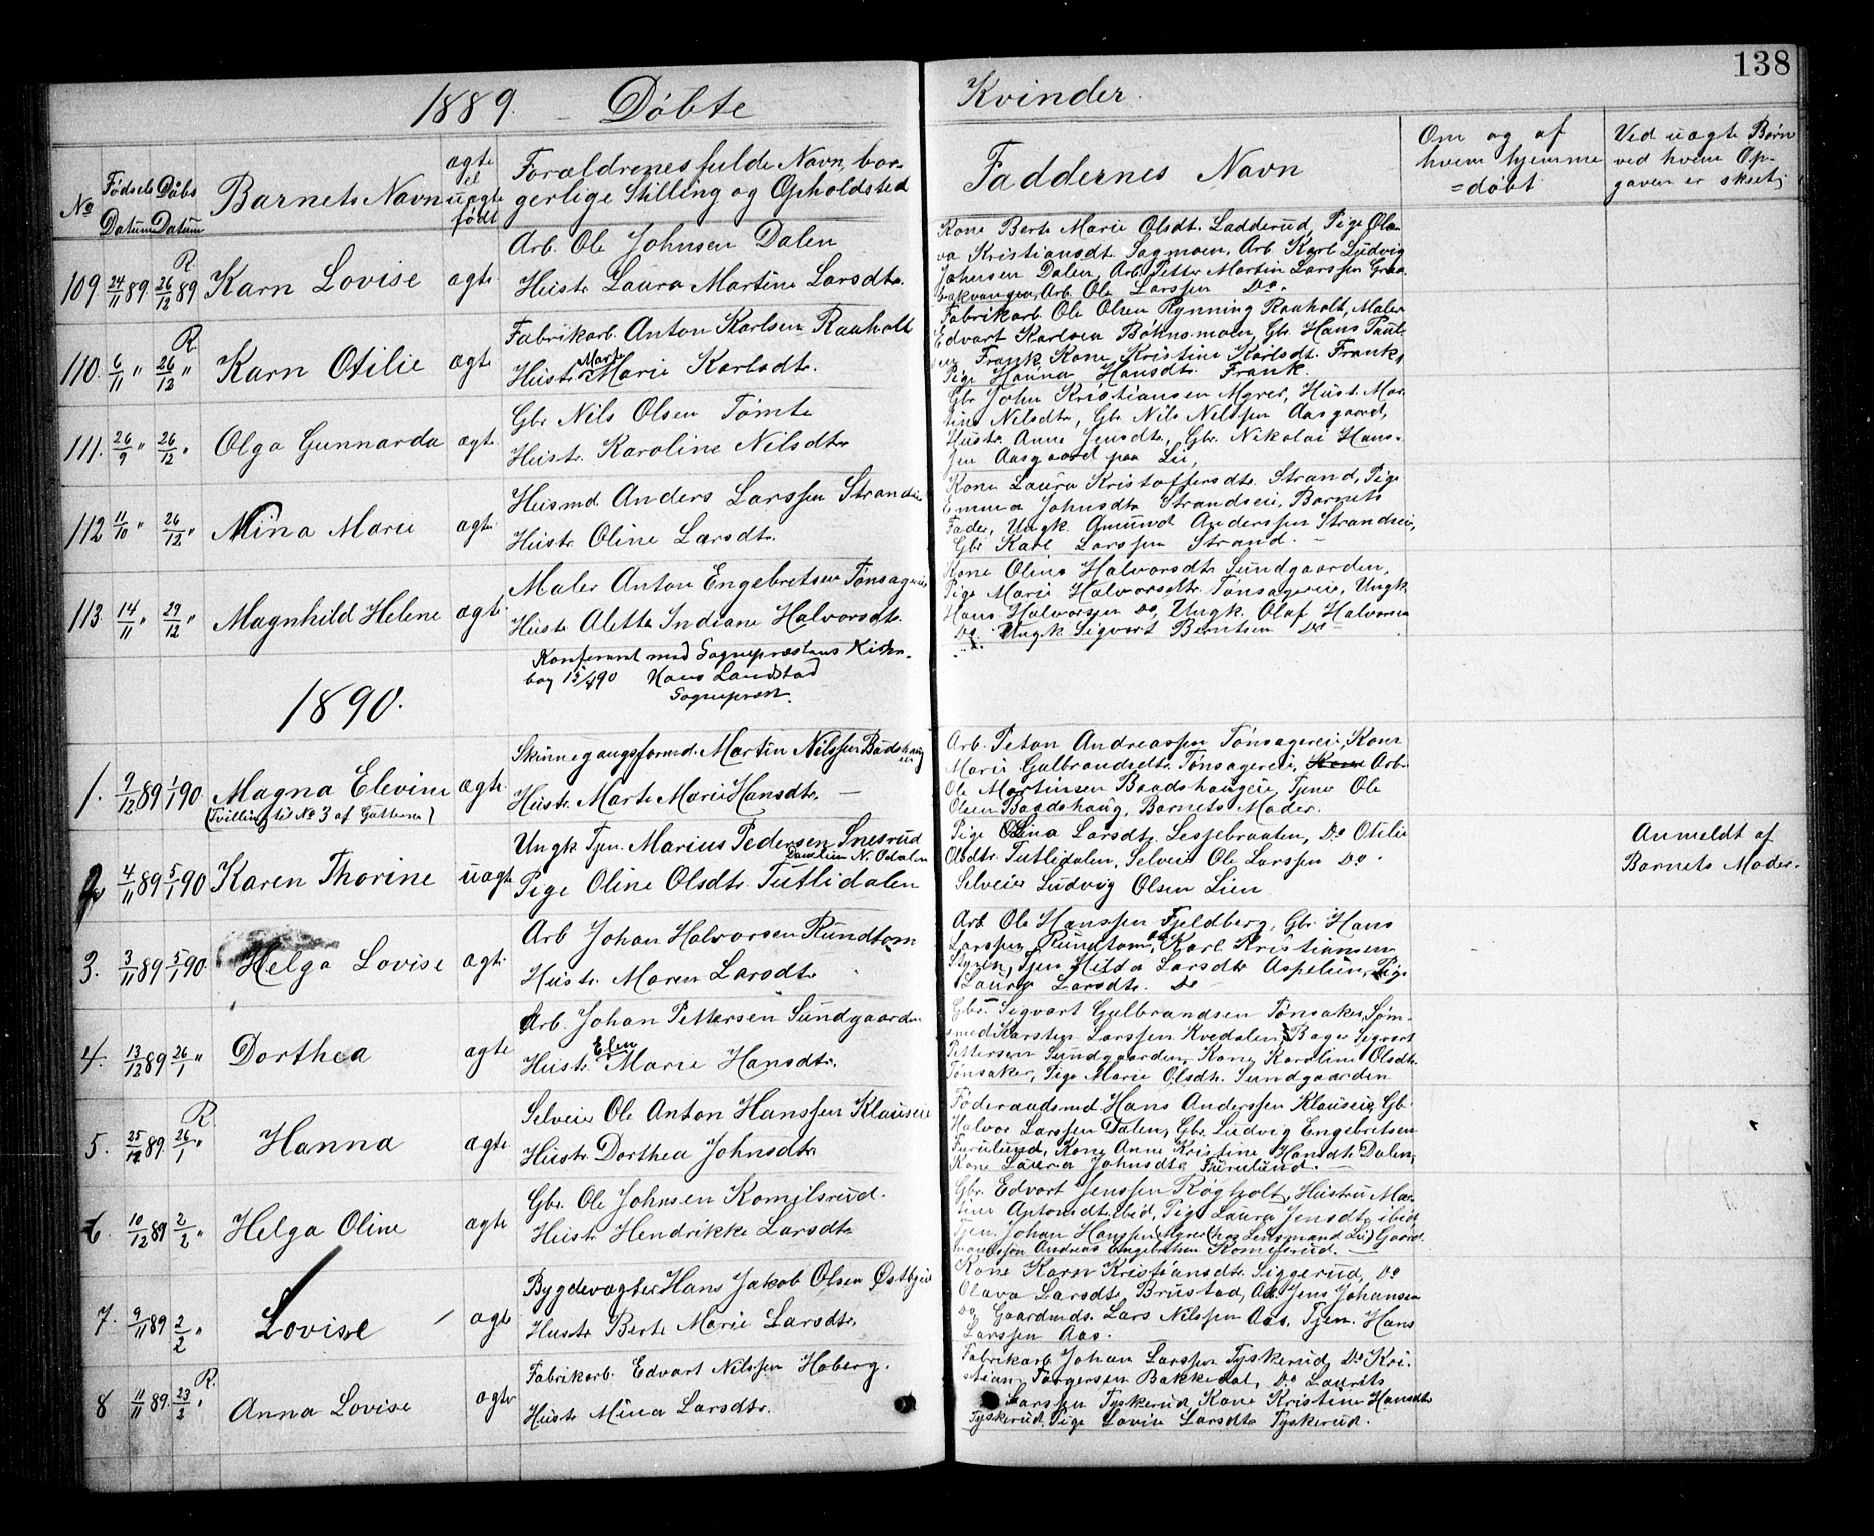 138
1889. – Döbte Kvinder.
No
Födsels Datum
Döbs Datum
Barnets Navn
ægte el uægte født
Forældrenes fulde Navn, bor-
gerlige Stilling og Opholdsted
Faddernes Navn
Om og af
hvem hjemme
=döbt
Ved uægte Børn
ved hvem Op-
gaven er skeet;
109 24/11 89. R. 26/12 89 Karn Lovise ægte
Arb. Ole Johnsen Dalen
Hustr. Laura Martine Larsdtr.
Kone Berte Marie Olsdt. Ladderud, Pige Ola-
va Kristiansdt. Sagmoen, Arb. Karl Ludvig
Johnsen Dalen, Arb. Petter Martin Larssen Graa-
bakvangen, Arb. Ole Larssen Do.
110. 6/11 " R. 26/12 " Karn Otilie ægte
Fabrikarb. Anton Karlsen Raaholt
Hustr. Marte Marie Karlsdtr.
Fabrikarb. Ole Olsen Rynning Raaholt, Maler
Edvart Karlsen Böhnsmoen, Gbr. Hans Paul-
sen Frank, Kone Kristine Karlsdt. Frank,
Pige Hanna Hansdtr. Frank.
111. 26/9 " 26/12 " Olga Gunnarda ægte
Gbr. Nils Olsen Tömte
Hustr. Karoline Nilsdtr.
Gbr. John Kristiansen Myrer, Hust. Mar-
tine Nilsdtr, Gbr. Nils Nilssen Aasgaard,
Hustr. Anne Jensdtr, Gbr. Nikolai Hans-
sen Aasgaard paa Lii,
112 11/10 " 26/12 " Mina Marie ægte
Husmd. Anders Larssen Strandeie
Hustr. Oline Larsdtr.
Kone Laura Kristoffersdtr. Strand, Pige
Emma Johnsdtr Strandseie, Barnets
Fader, Ungk. Amund Anderssen Strandseie,
Gbr. Karl Larssen Strand. –
113. 14/11 " 29/12 " Magnhild Helene ægte
Maler Anton Engebretsen Tönsagereie
Hustr Alette Indiane Halvorsdtr.
Kone Oline Halvorsdtr Sundgaarden,
Pige Marie Halvorsdtr. Tönsagereie, Ungk
Hans Halvorssen Do, Ungk. Olaf Halvorsen
Do. Ungk Sigvart Berntsen Do
Konferert med Sognepræstens Kirke-
bog 15/4 90 Hans Landstad
Sognepræst.
1890.
1. 9/12 89 1/1 90 Magna Elevine ægte
(Tvilling til No 3 af Guttene)
Skinnegangsformd. Martin Nilssen Baadshaug
eie
Hustr. Marte Marie Hansdtr. –
Arb. Peton Andreassen Tönsagereie, Kone
Marie Gulbrandsdtr. Tönsagereie, Kone Arb.
Ole Martinsen Baadshaugeie, Tjener Ole
Olsen Baadshaug, Barnets Moder.
2 4/11 89 5/1 90 Karen Thorine uægte
Ungk. Tjen. Marius Pedersen Snesrud
N. Odalen
Pige Oline Olsdtr. Tutlidalen
Pige Olina Larsdtr. Lessebraaten, Do Otilie
Olsdtr. Tutlidalen, Selveier Ole Larssen Do.
Selveier Ludvig Olsen Lien
Anmeldt af
Barnets Moder.
3. 3/11 89 5/1 90. Helga Lovise ægte
Arb Johan Halvorsen Rundtom
Hustr. Maren Larsdtr
Arb Ole Hanssen Fjeldberg, Gbr. Hans
Larssen Rundtom, Karl Kristiansen
Styren, Tjen Hilda Larsdtr Aspelien, Pige
Laura Larsdtr. Do –
4. 13/12 89 26/1 " Dorthea ægte
Arb. Johan Pettersen Sundgaarden
Hustr. Elen Marie Hansdtr.
Gbr. Sigvart Gulbrandsen Tönsaker, Söm-
smed Karsten Larssen Kvedalen, Bager Sigvart
Pettersen Sundgaarden, Kone Karoline Olsdtr.
Tönsaker, Pige Marie Olsdtr. Sundgaarden
5. 25/12 89. R. 26/1 " Hanna ægte
Selveier Ole Anton Hanssen Klauseie
Hustr. Dorthea Johnsdtr
Föderaadsmd Hans Anderssen Klauseie, Gb.
Halvor Larssen Dalen, Gbr. Ludvig Engebretsen
Furulund, Kone Anne Kristine Hansdtr Dalen,
Kone Laura Johnsdtr Furulund. –
6. 10/12 89 2/2 " Helga Oline ægte
Gbr. Ole Johnsen Komilsrud.
Hustr Hendrikke Larsdtr
Gbr. Edvart Jenssen Rögholt, Hustru Mar-
tine Antonsdtr ibid, Pige Laura Jensdtr ibid,
Tjen. Johan Hanssen Myrer (hos Lensmand Lie) Gaard
mandssön Andreas Engebretsen Komserud. –
7. 9/11 89 2/2 " Lovise ægte
Bygdevægter Hans Jakob Olsen Østbyeie
Hustr Berte Marie Larsdtr.
Kone Karn Kristiansdtr. Siggerud, Do
Olava Larsdtr Brustad, Arb. Jens Johansen
Do, Gaardmds. Lars Nilssen Aas, Tjen. Hans
Larssen Aas.
8 11/11 89. R. 23/2 " Anna Lovise ægte
Fabrikarb. Edvart Nilssen Hoberg.
Hustr Mina Larsdtr.
Fabrikarb. Johan Larssen Tyskerud, Do Kri-
stian Torgersen Bakkedal, Do Laurits
Larssen Tyskerud, Kone Kristine Hansdtr
Tyskerud, Pige Lovise Larsdtr Tyskerud.